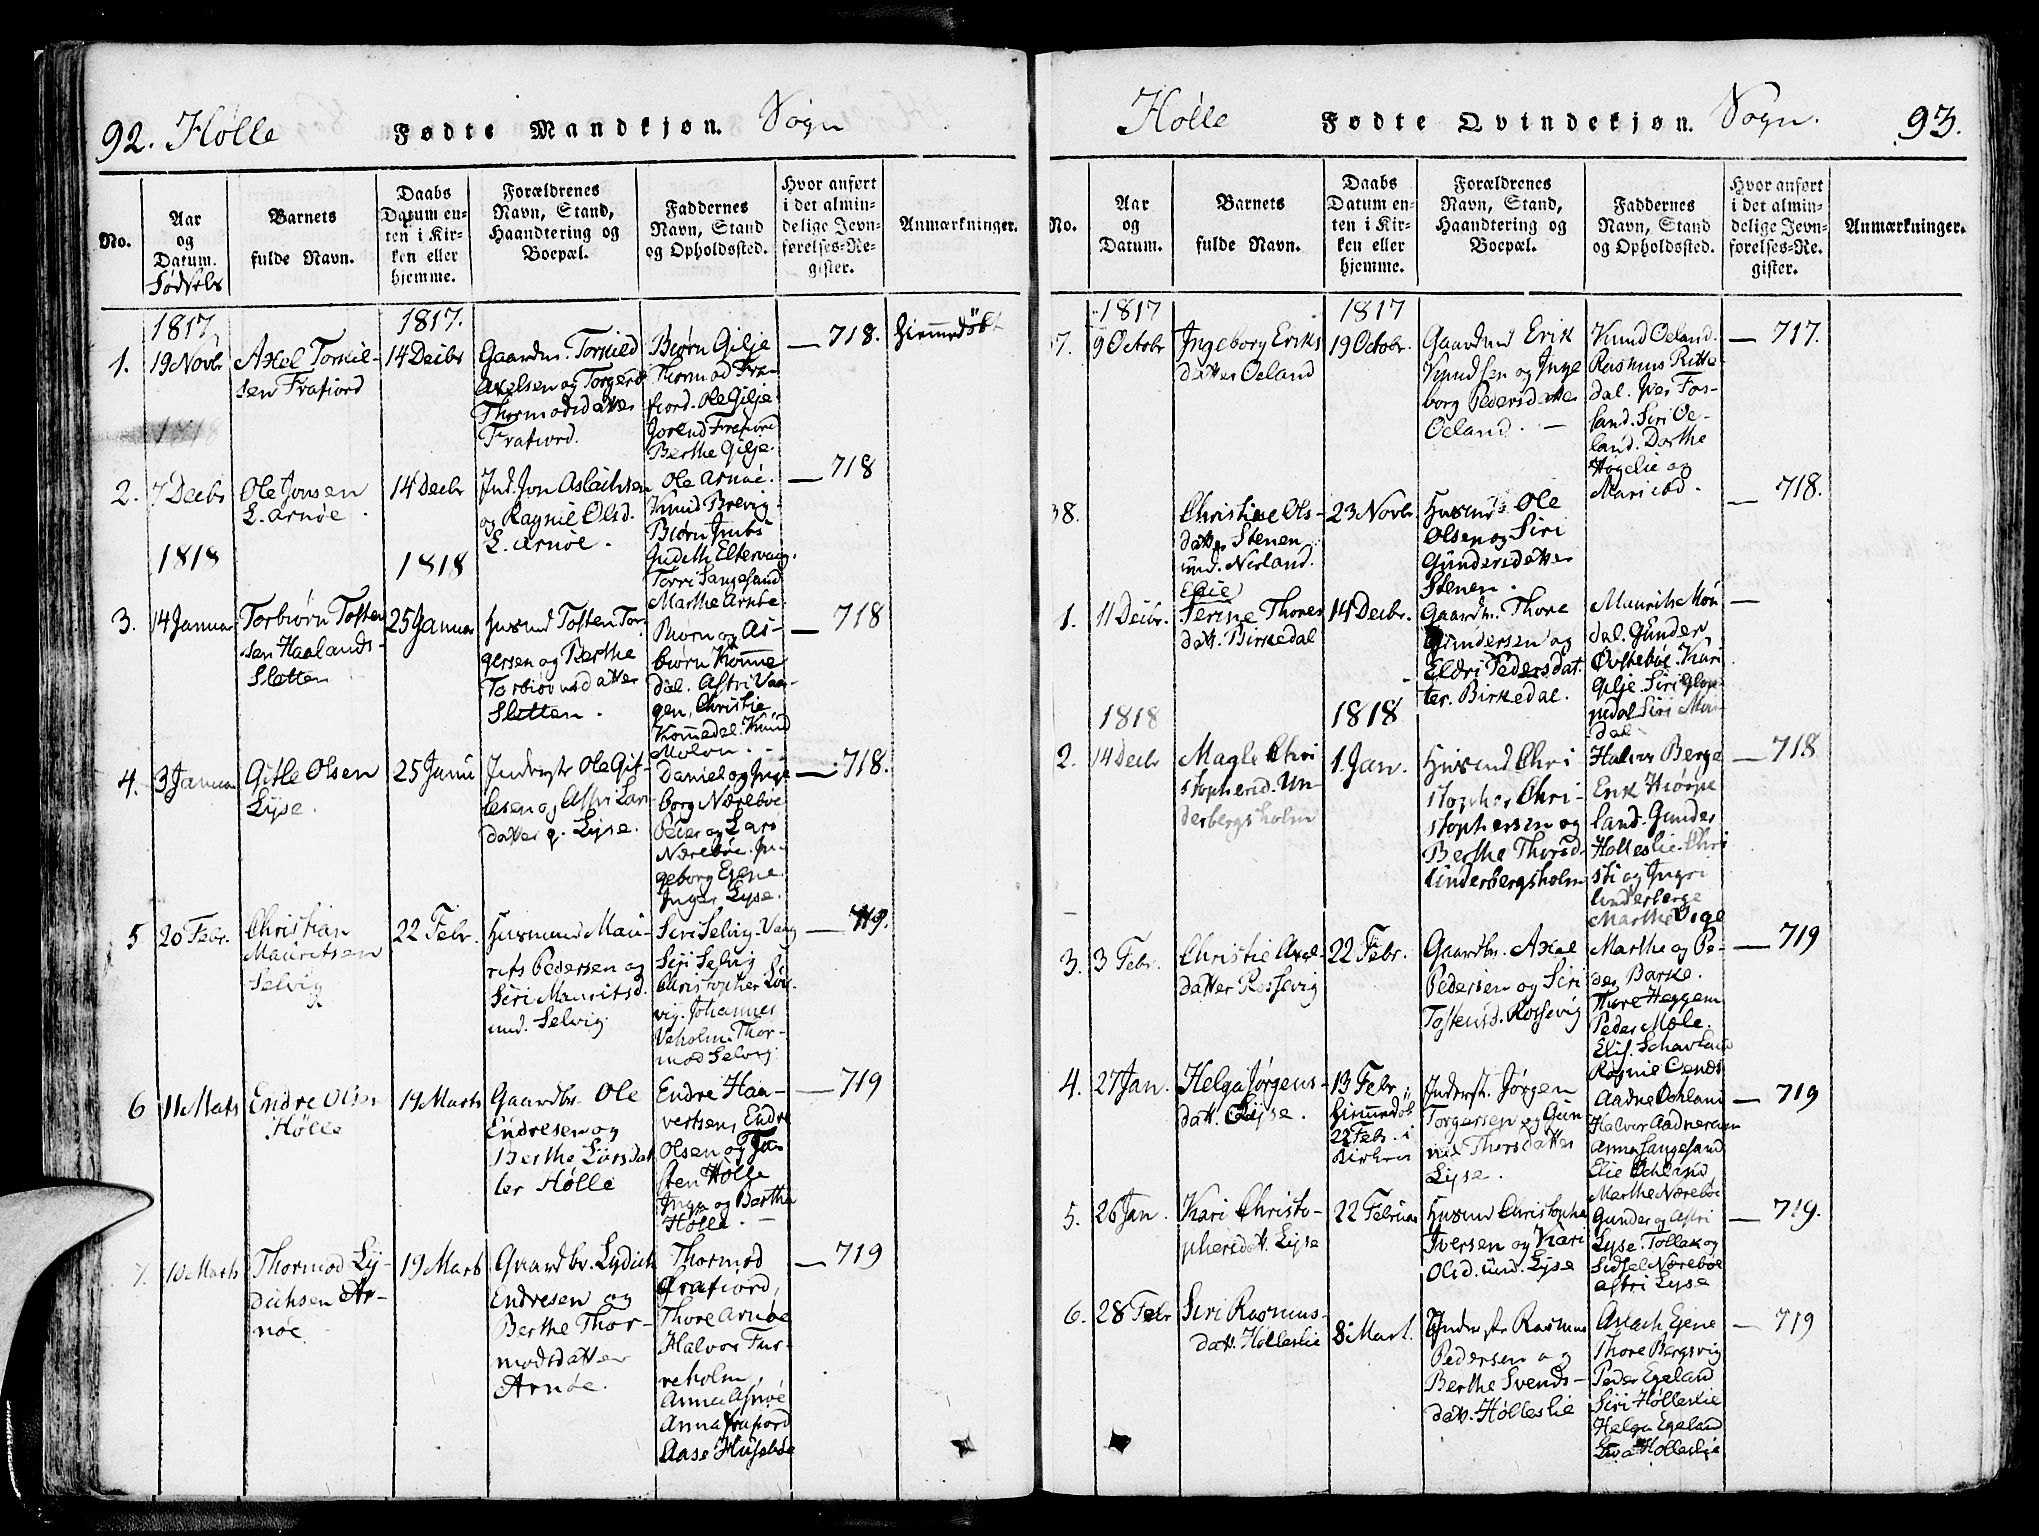 92. Hølle Fødte Mandkjøn. Sogn
No.
Aar
og
Datum.
Fødsels
Barnets
fulde Navn.
Daabs
Datum en-
ten i Kir-
ken eller
hjemme.
Forældrenes
Navn, Stand,
Haandtering og
Boepæl.
Faddernes
Navn, Stand
og Opholdssted.
Hvor anført
i det almin-
delige Jevn-
førelses-Re-
gister.
Anmærkninger.
1817
1817.
1.
19 Novbr
Axel Torkil-
sen Frafiord
14 Decbr
Gaardm. Torkild
Axelsen og Torgerd
Thormodsdatter
Frafiord.
Biørn Gilje
Thormod Fra-
fiord. Ole Gilje
Jorend Frafiord
Berthe Gilje.
— 718.
Hiemmedøbt
1818
2.
7 Decbr
Ole Jonsen
L. Arnøe.
14 Decbr
Ind. Jon Aslachsen
og Ragnil Olsd.
L. Arnøe.
Ole Arnøe.
Knud Brevig
Biørn
Gudeth Eltervaag.
Torri Sangesand
Marthe Arnøe.
— 718
1818
1818
3.
14 Januar
Torbiørn Tosten
sen Haalands-
Sletten
25 Januar
Husmd Tosten Tor-
gersen og Berthe
Torbiørnsdatter
Sletten.
Biørn og As-
biørn Komme
dal. Astri Vaa-
gen. Christie
Kommedal. Knud
Molvn.
— 718
4.
3 Januar
Gitle Olsen
Lyse.
25 Janu
Inderstr Ole Git-
lesen og Astri Lars
datter q. Lyse.
Daniel og Inge
borg Nærebøe
Peder og Lars
Nærebøe. In-
geborg Ejene
Inger Lyse.
— 718.
5
20 Febr.
Christian
Mauritsen
Selvig
22 Febr.
Husmand Mau-
rits Pedersen og
Siri Mauritsd.
und. Selvig.
Siri Selvig. Vaag
Siri Selvig
Christopher Løs-
vig. Johannes
Veholm. Thor-
mod Selvig.
— 719.
6
11 Marts
Endre Olsen
Hølle
19 Marts
Gaardbr. Ole
Endresen og
Berthe Larsdat
ter Hølle
Endre Haa-
vertsen, Endre
Olsen og To-
sten Hølle
Inga og Berthe
Hølle.
— 719
7.
10 Marts
Thormod Ly-
dichsen Ar-
nøe.
19 Marts
Gaardbr. Lydich
Endresen og
Berthe Thor-
modsdatter
Arnøe.
Thormod
Frafiord,
Thore Arnøe
Halvor Fur-
reholm,
Anna Arnøe
Anna Frafiord
Aase Husebøe
— 719
Hølle Fødte Qvindekjøn. Sogn. 93.
No.
Aar
og
Datum.
Barnets
fulde Navn.
Daabs
Datum en-
ten i Kir-
ken eller
hjemme.
Forældrenes
Navn, Stand,
Haandtering og
Boepæl.
Faddernes
Navn, Stand
og Opholdssted.
Hvor anført
i det almin-
delige Jevn-
førelses-Re-
gister.
Anmærkninger.
1817
1817
37.
9 Octobr
Ingeborg Eriks
datter Oeland
19 Octobr.
Gaardmd Erik
Knudsen og Inge
borg Pedersdatter
Oeland.
Knud Oeland.
Rasmus Rette
dal. Iver Fos-
land. Siri Oe-
land. Dorthe
Hogelie og
Mari ibd.
— 717.
38.
Christine Ols-
datter Stenen
und. Nerland.
23 Novbr.
Husmd Ole
Olsen og Siri
Gundersdatter
Stenen.
— 718.
1.
11 Decbr.
Elie
Serine Thores
datt. Birkedal
14 Decbr.
Gaardm. Thore
Gundersen og
Eldri Pedersdat.
ter. Birkedal.
Maurits Møn
dal. Gunder
Østebøe. Kari
Gilje. Siri Glop
pedal Siri Møn
dal
—
1818
1818
2.
14 Decbr
Magle Chri
stophersd. Un-
derbergsholm
1. Jan.
Husmd Chri
stopher Chri-
stophersen og
Berthe Thorsd.
Underbergsholm
Halvor Berge
Erik Hiørpe
land. Gunder
Holleslie. Chri
sti og Ingri
Underberge
Marthe Vige
— 718
3.
3 Febr.
Christie Axel-
datter Rossevig
22 Febr.
Gaardbr. Axel
Pedersen og Siri
Tostensd. Rossevig
Marthe og Pe-
der Barke.
Thore Heggem
Peder Mæle.
Elis. Schavland
— 719
4.
27 Jan.
Helga Jørgens-
datt. Lyse.
13 Febr.
Hiemmedøb
22 Febr. i
Kirken
Inderst. Jørgen
Torgersen og Gun
nil Thorsdatter
Lyse.
Ragnie Ejends
Aadne Ochland
Halvor Aadneram
Anna Sangesand
Elie Ochland
Marthe Nærebøe
— 719
5.
26 Jan.
Kari Christo-
phersdatt. Lyse
22 Februar
Husmd Christopher
Iversen og Kari
Olsd. und. Lyse
Gunder og Astri
Lyse. Tollak og
Sidsel Nærebøe
Astri Lyse
— 719.
6.
28 Febr
Siri Rasmus-
datt. Hølleslie
8 Mart.
Inderstr Rasmus
Pedersen og
Berthe Svends-
datt. Hølleslie
Aslach Ejene
Thore Bergsvig
Peder Egeland
Siri Hølleslie
Helga Egeland
Eva Hølleslie
— 719